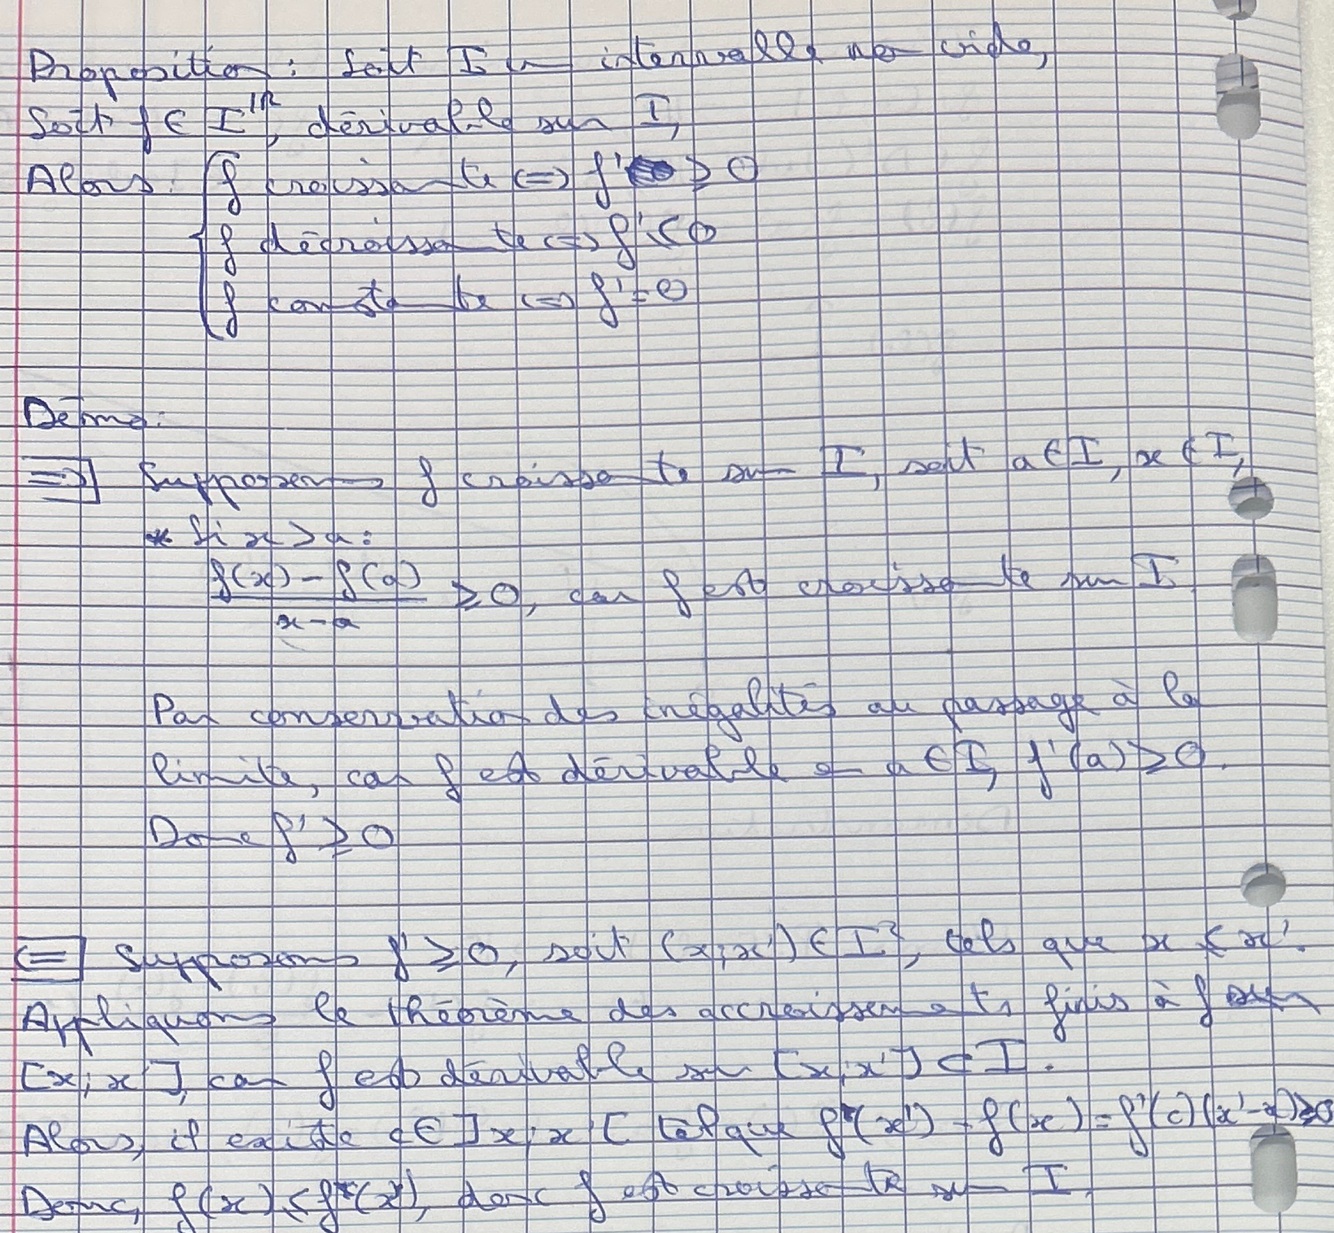 Proposition : Soit I un intervalle non vide,
Soit f ∈ I^ℝ, dérivable sur I,
Alors : { f croissante <=> f' ≥ 0
f décroissante <=> f' ≤ 0
f constante <=> f' = 0
Démo :
=> Supposons f croissante sur I, soit a ∈ I, x ∈ I,
* Si x > a :
(f(x) - f(a))/(x - a) ≥ 0, car f est croissante sur I
Par conservation des inégalités au passage à la
limite, car f est dérivable en a ∈ I, f'(a) ≥ 0.
Donc f' ≥ 0
<= Supposons f' ≥ 0, soit (x; x') ∈ I², tels que x < x'.
Appliquons le théorème des accroissements finis à f sur
[x; x'], car f est dérivable sur [x; x'] ⊂ I.
Alors, il existe c ∈ ]x; x'[ tel que f(x') - f(x) = f'(c)(x' - x) ≥ 0
Donc, f(x) ≤ f(x'), donc f est croissante sur I